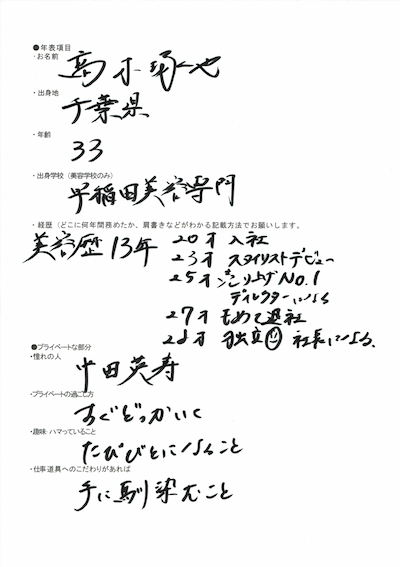 ●年表項目
・お名前
高木琢也
・出身地
千葉県
・年齢
33
・出身学校（美容学校のみ）
早稲田美容専門
・経歴（どこに何年間務めたか、肩書きなどがわかる記載方法でお願いします。
美容歴13年 20才 入社
23才 スタイリストデビュー
25才 売り上げNo.1
ディレクターになる
27才 もめて退社
28才 独立 社長になる、
●プライベートな部分
・憧れの人
中田英寿
・プライベートの過ごし方
すぐどっかいく
・趣味・ハマっていること
たびびとになること
・仕事道具へのこだわりがあれば
手に馴染むこと